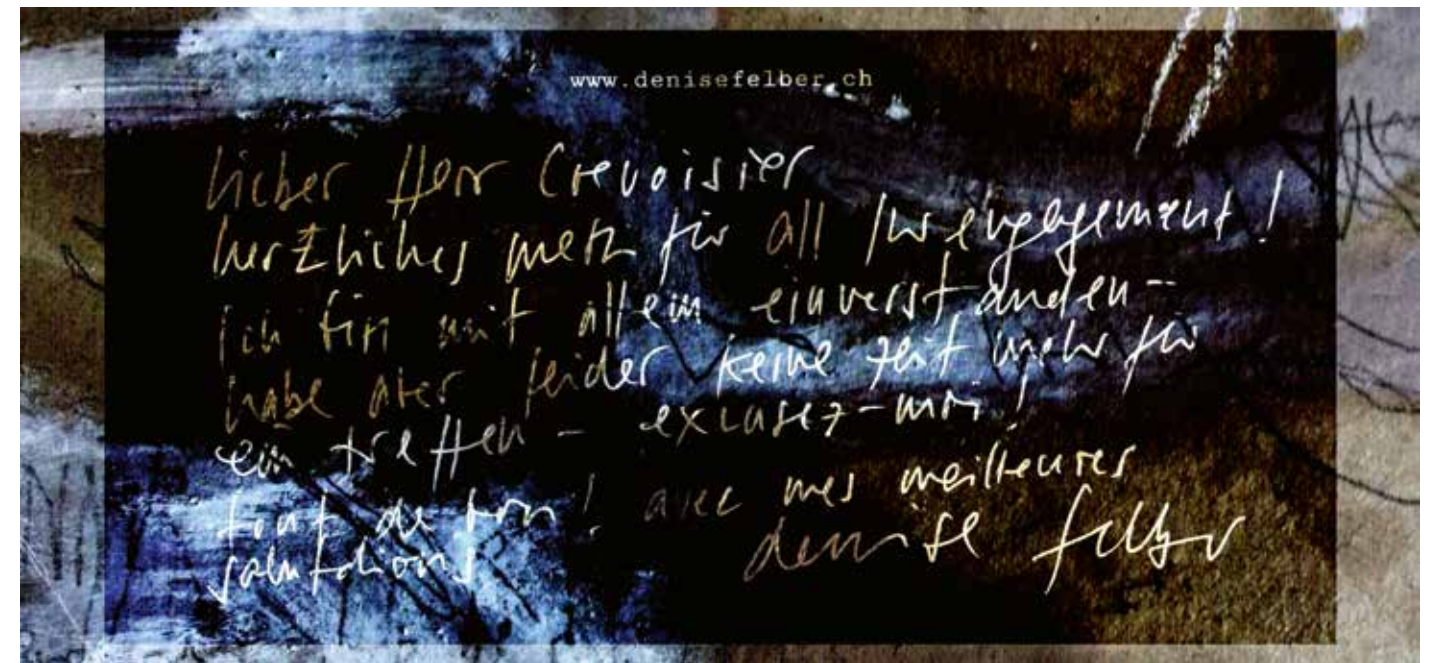 www.denisefelber.ch
lieber Herr Crevoisier
herzliches merci für all Ihr engagement!
ich bin mit allem einverstanden -
habe aber leider keine zeit mehr für
ein treffen - excusez-moi!
tout de bon! avec mes meilleures
salutations denise felber